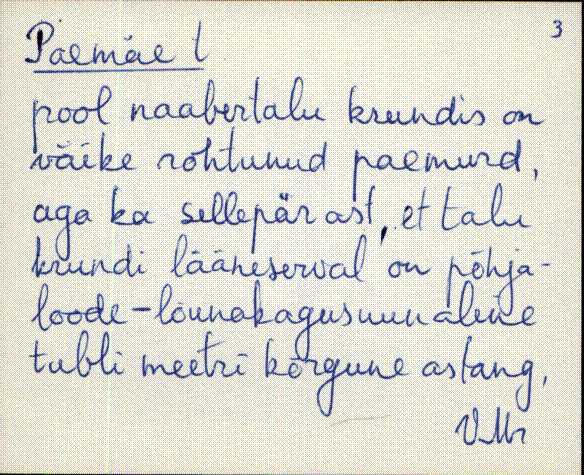 3
Paemäe t
pool naabertalu krundis on
väike rohtunud paemurd,
aga ka sellepärast, et talu
krundi lääneserval on põhja-
loode-lõunakagusuunaline
tubli meetri kõrgune astang,
VMr